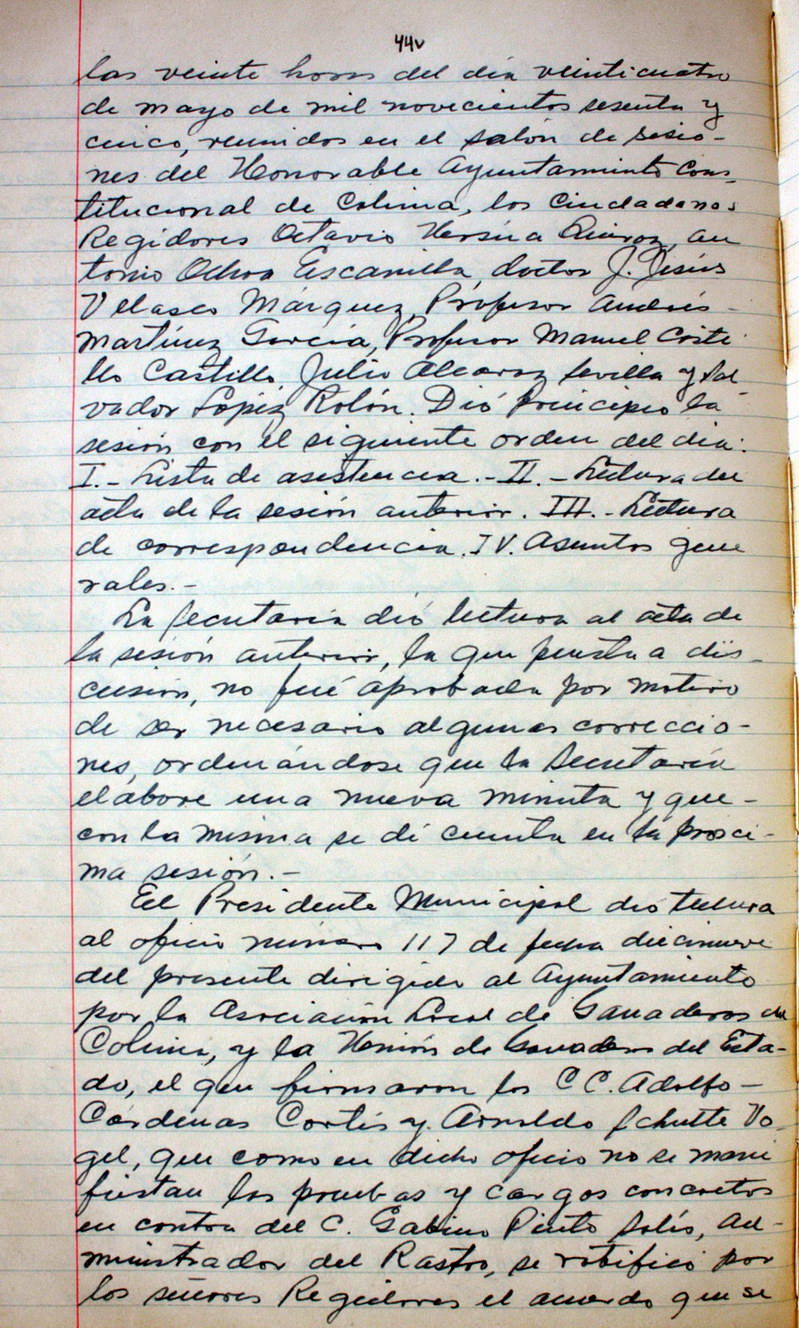 44v
las veinte horas del día veinticuatro
de mayo de mil novecientos sesenta y
cinco, reunidos en el salón de sesio-
nes del Honorable Ayuntamiento Cons-
titucional de Colima, los Ciudadanos
Regidores Octavio Urzúa Quiroz, An
tonio Ochoa Escamilla, doctor J. Jesús
Velasco Márquez, Profesor Andrés
Martínez García, Profesor Manuel Costi
llo Castillo, Julio Alcaraz Sevilla y Sal
vador López Rolón. Dió principio la
sesión con el siguiente orden del dia:
I.- Lista de asistencia.- II.- Lectura del
acta de la sesión anterior. III.- Lectura
de correspondencia. IV. Asuntos gene
rales.-
La Secretaria dió lectura al acta de
la sesión anterior, la que puesta a dis-
cusión, no fué aprobada por motivo
de ser necesario algunas correccio-
nes, ordenándose que la Secretaría
elabore una nueva minuta y que-
con la misma se dé cuenta en la proxi-
ma sesión.-
El Presidente Municipal dió lectura
al oficio número 117 de fecha diecinueve
del presente dirigido al Ayuntamiento
por la Asociación Local de Ganaderos de
Colima, y la Unión de Ganaderos del Esta-
do, el que firmaron los CC. Adolfo-
Cárdenas Cortés y Arnoldo Schutte Vo
gel, que como en dicho oficio no se mani
fiestan las pruebas y cargos concretos
en contra del C. Gabino Pinto Solís, Ad-
ministrador del Rastro, se ratificó por
los señores Regidores el acuerdo que se